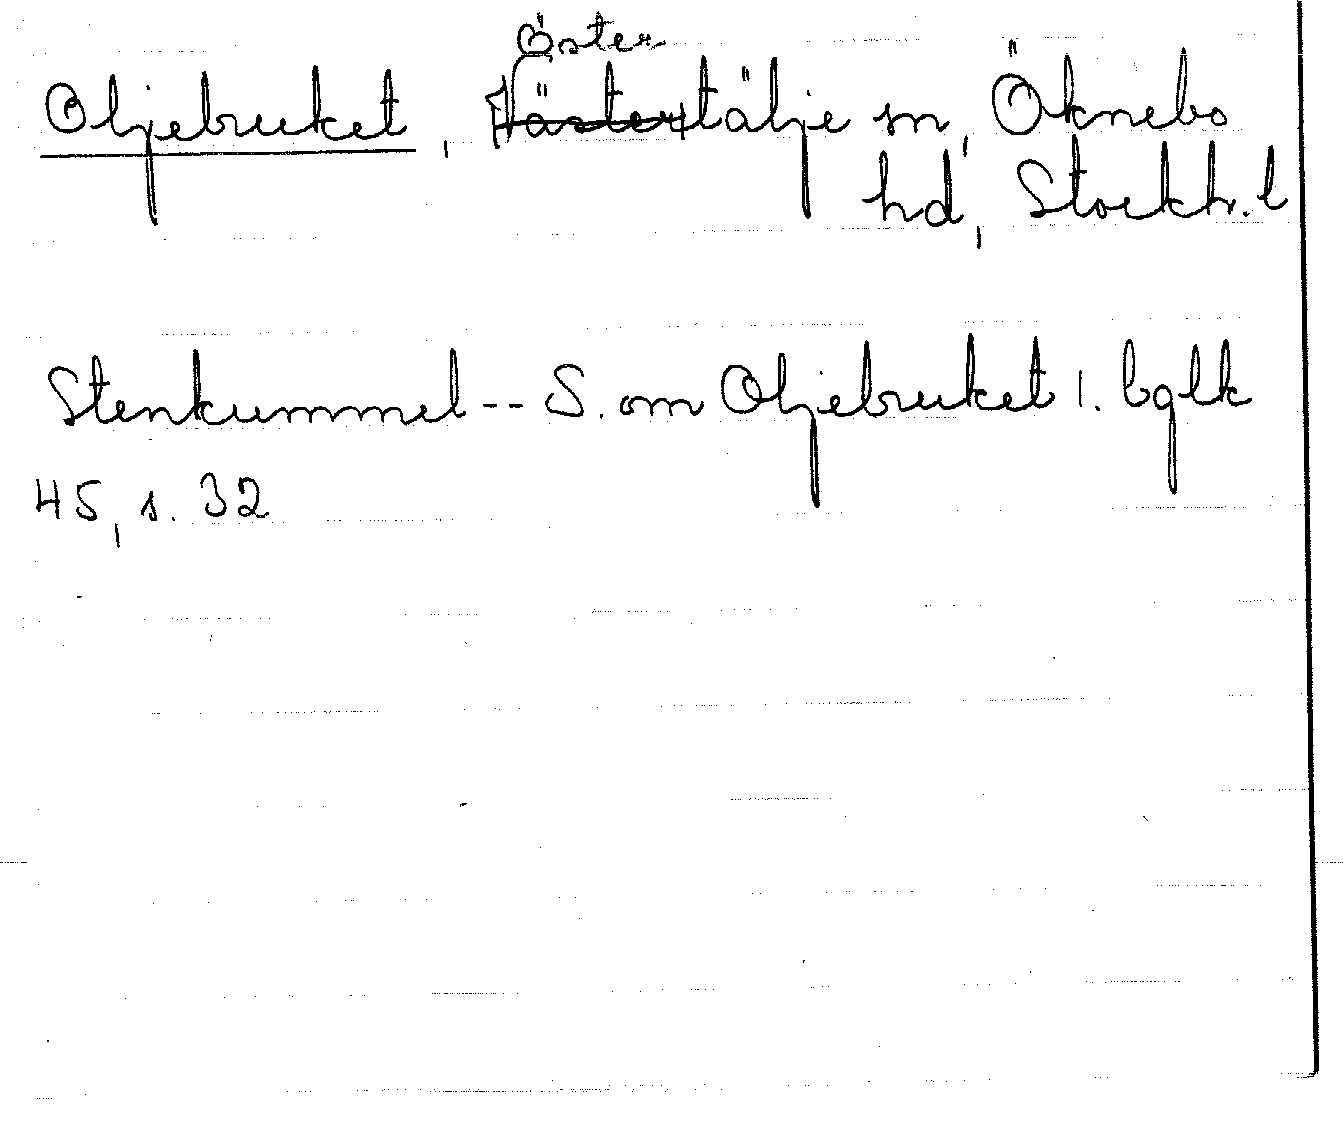 Öster
Oljebruket, Västertälje sn, Öknebo
hd, Stockh. l
Stenkummel -- S. om Oljebruket 1. bglk
45, s. 32